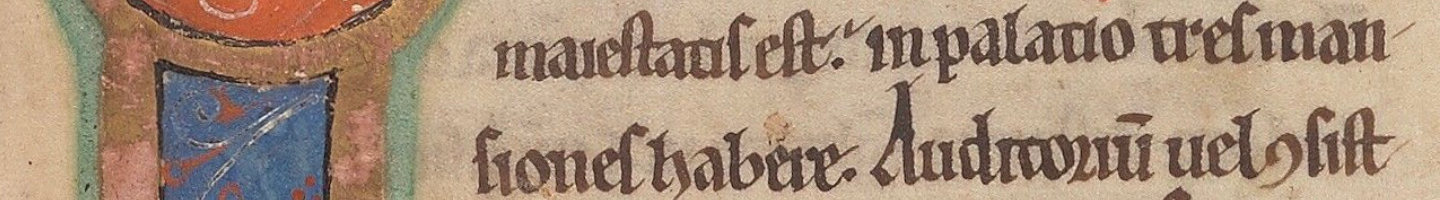 maiestatis est. in palatio tres man-
siones habere. Auditoriū uel ꝯsist-